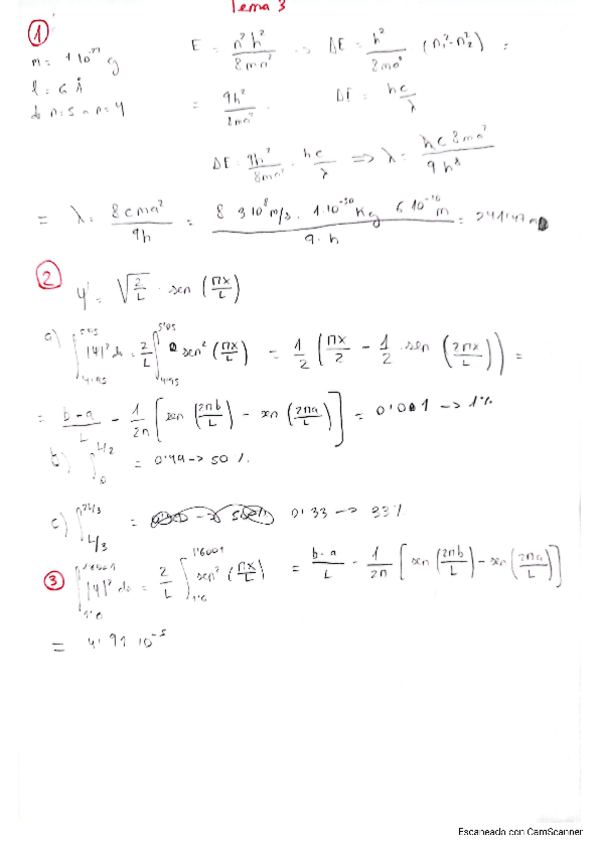 Tema 3
①
m = 1 10⁻²⁷ g
l = 6 Å
de n=5 a n=4
E = n²h² / 8ma² => ΔE = h² / 8ma² (n₁²-n₂²) =
= 9h² / 8ma² ΔE = hc / λ
ΔE = 9h² / 8ma² = hc / λ => λ = hc8ma² / 9h²
= λ = 8cma² / 9h = 8 3 10⁸ m/s · 1·10⁻³⁰ Kg 6 10⁻¹⁰ m / 9·h =
②
Ψ = √(2/L) · sen (πx/L)
a) ∫ |Ψ|² dx = 2/L ∫ sen² (πx/L) = 1/2 (πx/2 - 1/2 sen (2πx/L)) =
= b-a / L - 1/2π [sen (2πb/L) - sen (2πa/L)] = 0'001 -> 1%
b) ∫₀^(L/2) = 0'49 -> 50 %.
c) ∫_(L/3)^(2L/3) = 0'33 -> 33%
③ ∫ |Ψ|² dx = 2/L ∫_(1'6)^(1'6001) sen² (πx/L) = b-a / L - 1/2π [sen (2πb/L) - sen (2πa/L)]
= 4'91 10⁻⁵
Escaneado con CamScanner